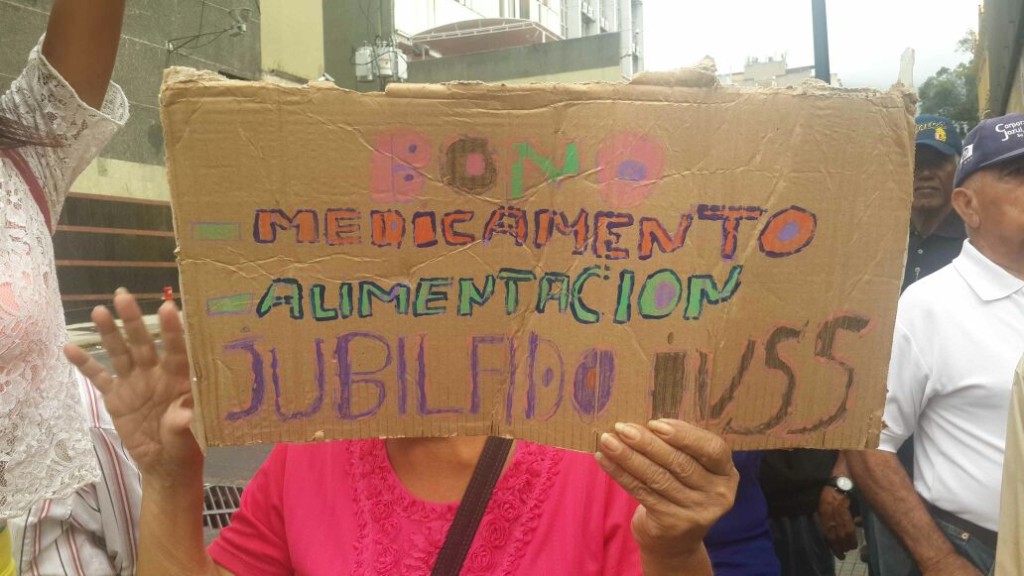 BONO
- MEDICAMENTO
- ALIMENTACION
JUBILADO iVSS